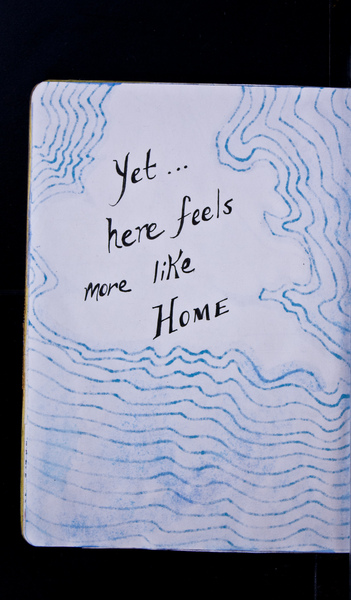 Yet...
here feels
more like
HOME